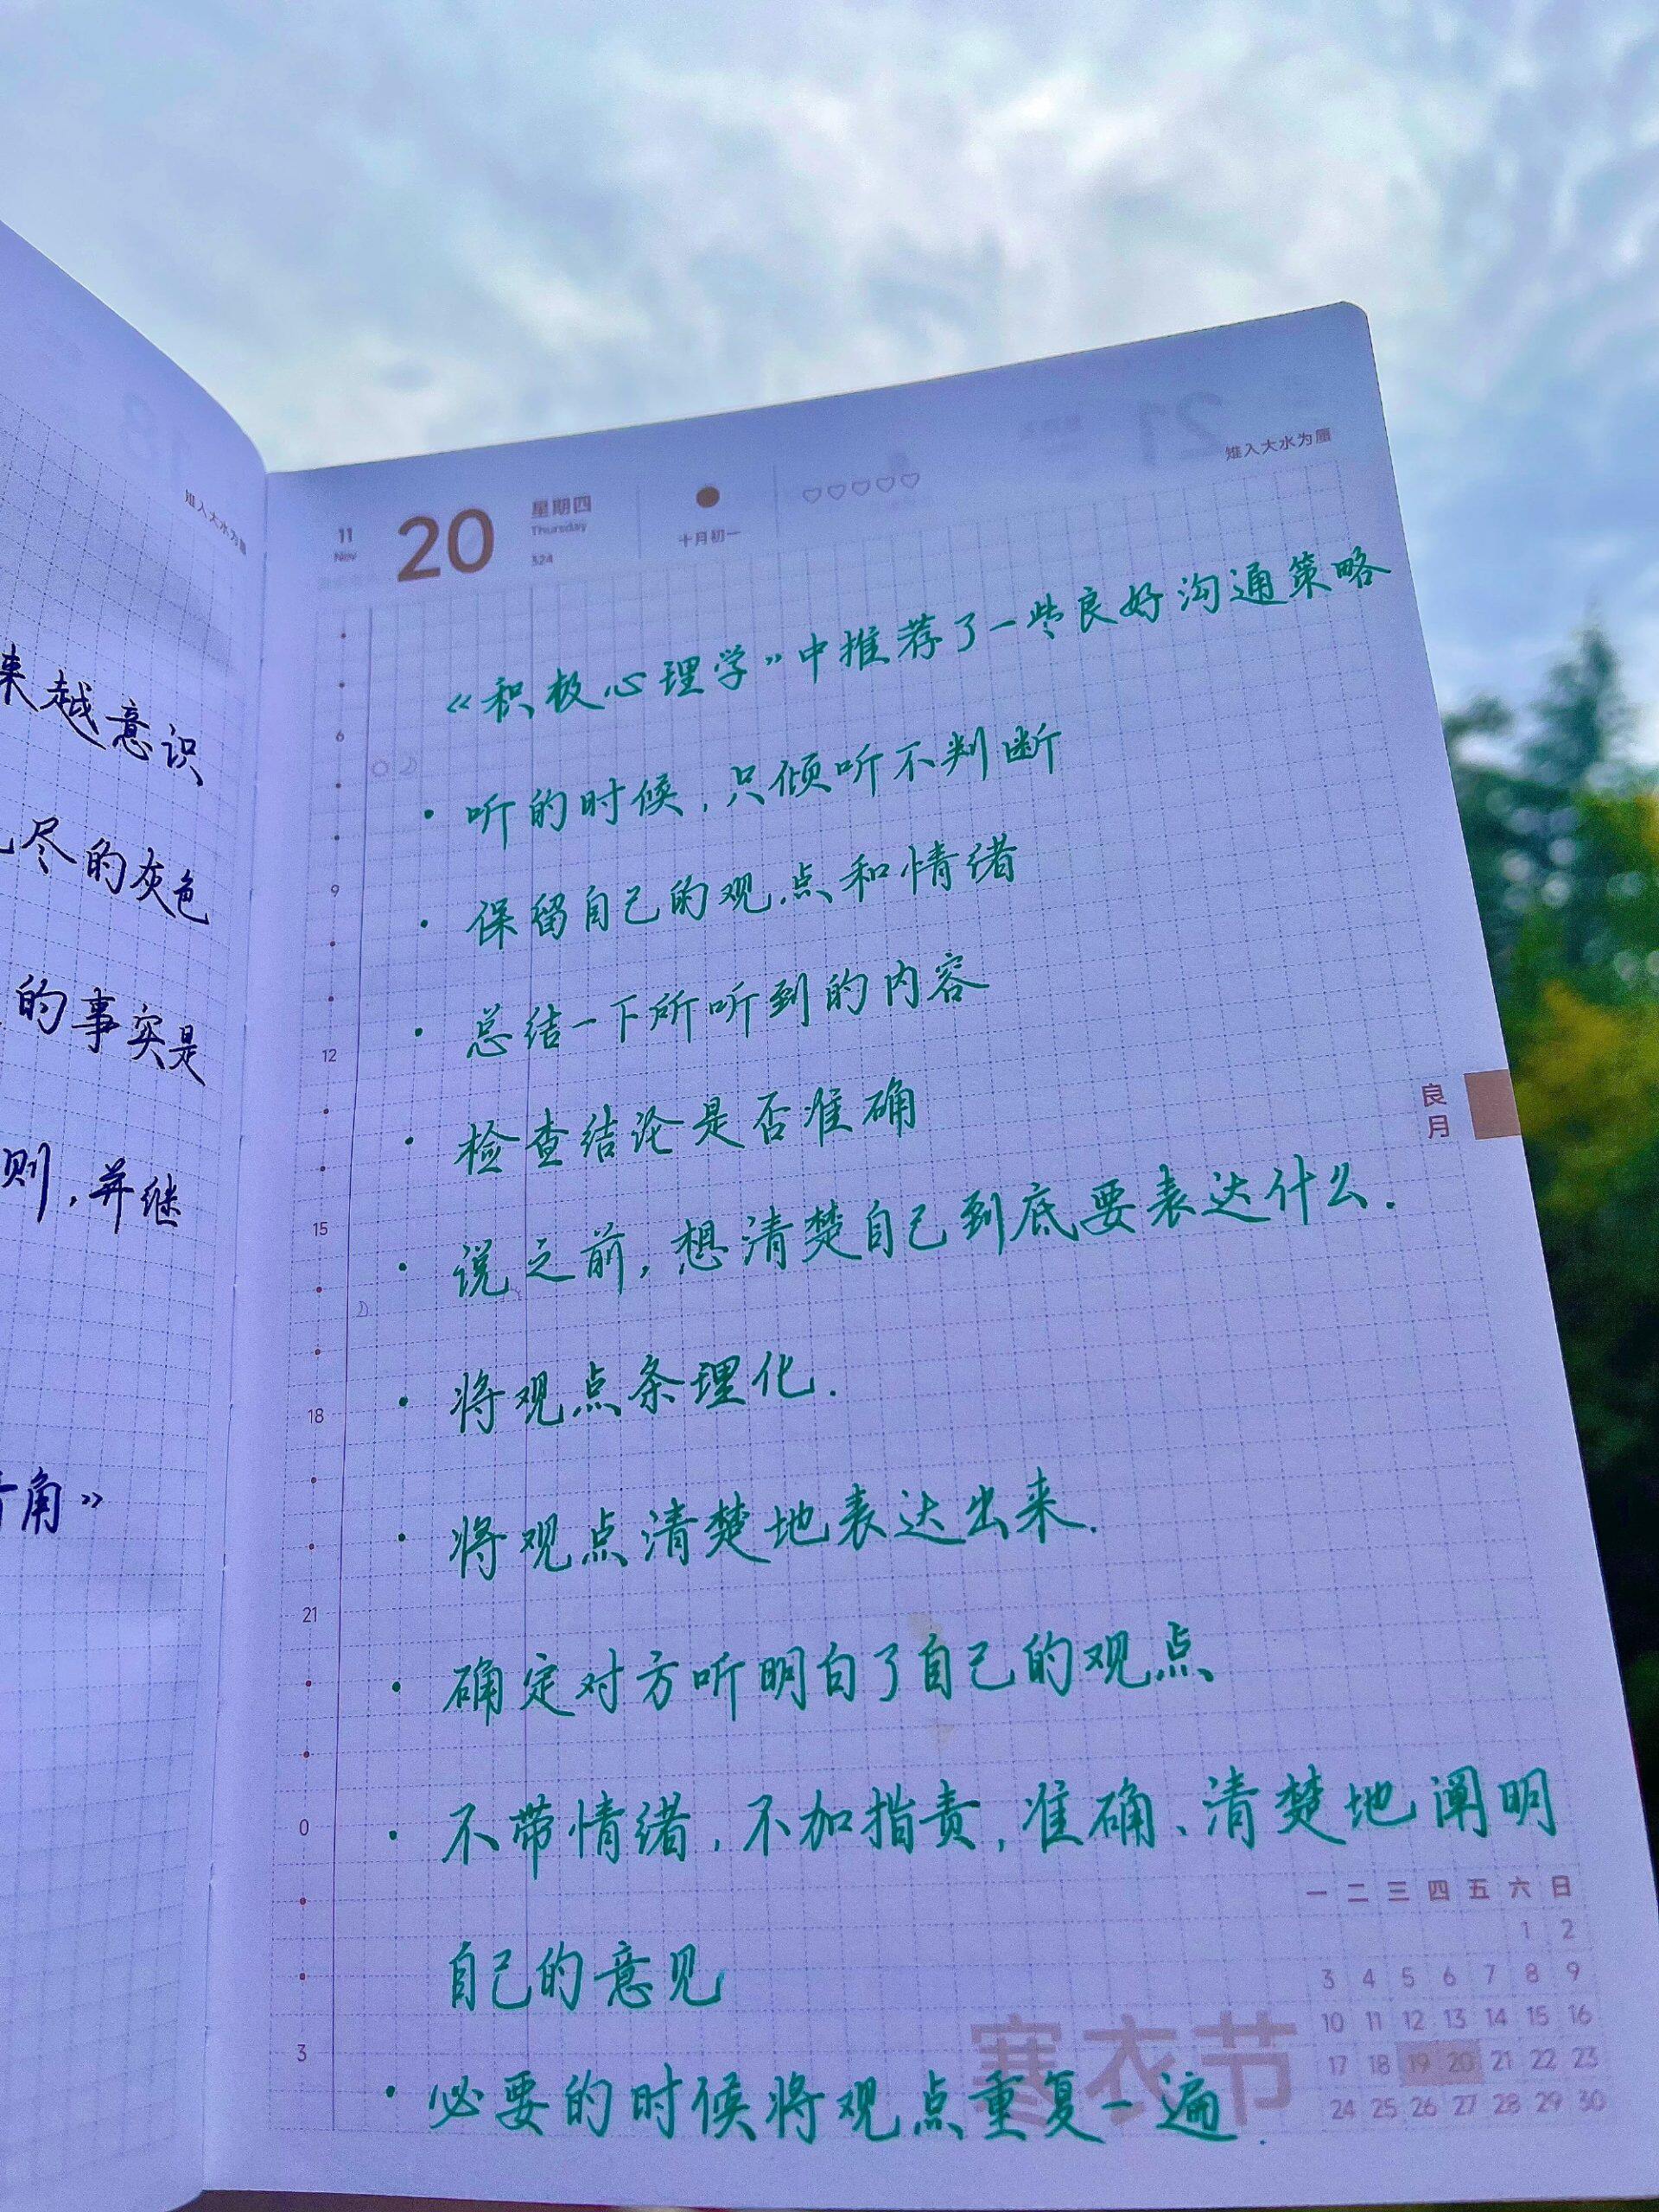 雉入大水为蜃
来越意识
尽的灰色
的事实是
则,并继
角》
11
Nov
20
星期四
Thursday
324
十月初一
雉入大水为蜃
《积极心理学》中推荐了一些良好沟通策略
·听的时候,只倾听不判断
·保留自己的观点和情绪
·总结一下所听到的内容
·检查结论是否准确
·说之前,想清楚自己到底要表达什么.
·将观点条理化.
·将观点清楚地表达出来.
·确定对方听明白了自己的观点
·不带情绪,不加指责,准确、清楚地阐明
自己的意见
·必要的时候将观点重复一遍.
6
9
12
15
18
21
0
3
良月
寒衣节
一 二 三 四 五 六 日
1 2
3 4 5 6 7 8 9
10 11 12 13 14 15 16
17 18 19 20 21 22 23
24 25 26 27 28 29 30